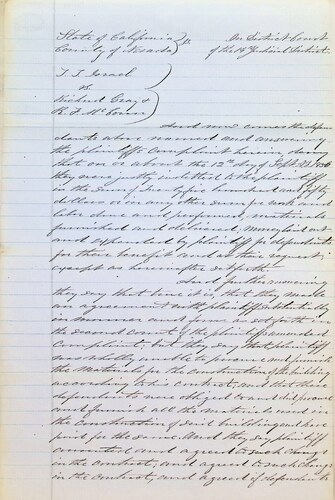 State of California } ss
County of Nevada
In District Court
of the 14th Judicial District
T. I. Israel
vs.
Michael Gray &
R. F. McConn
And now comes the defen
dants above named and answering
the plaintiffs Complaint herein deny
that on or about the 12th day of Sept.
they were justly indebted to the plaintiff
in the sum of Twenty five hundred and fifty
dollars or in any other sum for work and
labor done and performed, materials
furnished and delivered, money laid out
and expended by plaintiff for defendants
for their benefit and at their request
except as hereinafter set forth
And further answering
they say that true it is, that they made
an agreement with plaintiff
in manner and form as set forth in
the second Count of the plaintiffs amended
Complaint, but they say that plaintiff
was wholly unable to procure and furnish
the Materials for the construction of the building
according to his contract, and that these
defendants were obliged to and did procure
and furnish all the materials used in
the construction of said building and have
paid for the same. And they say plaintiff
consented and agreed to such change
in the contract, and agreed to such change
in the contract, and agreed if defendants